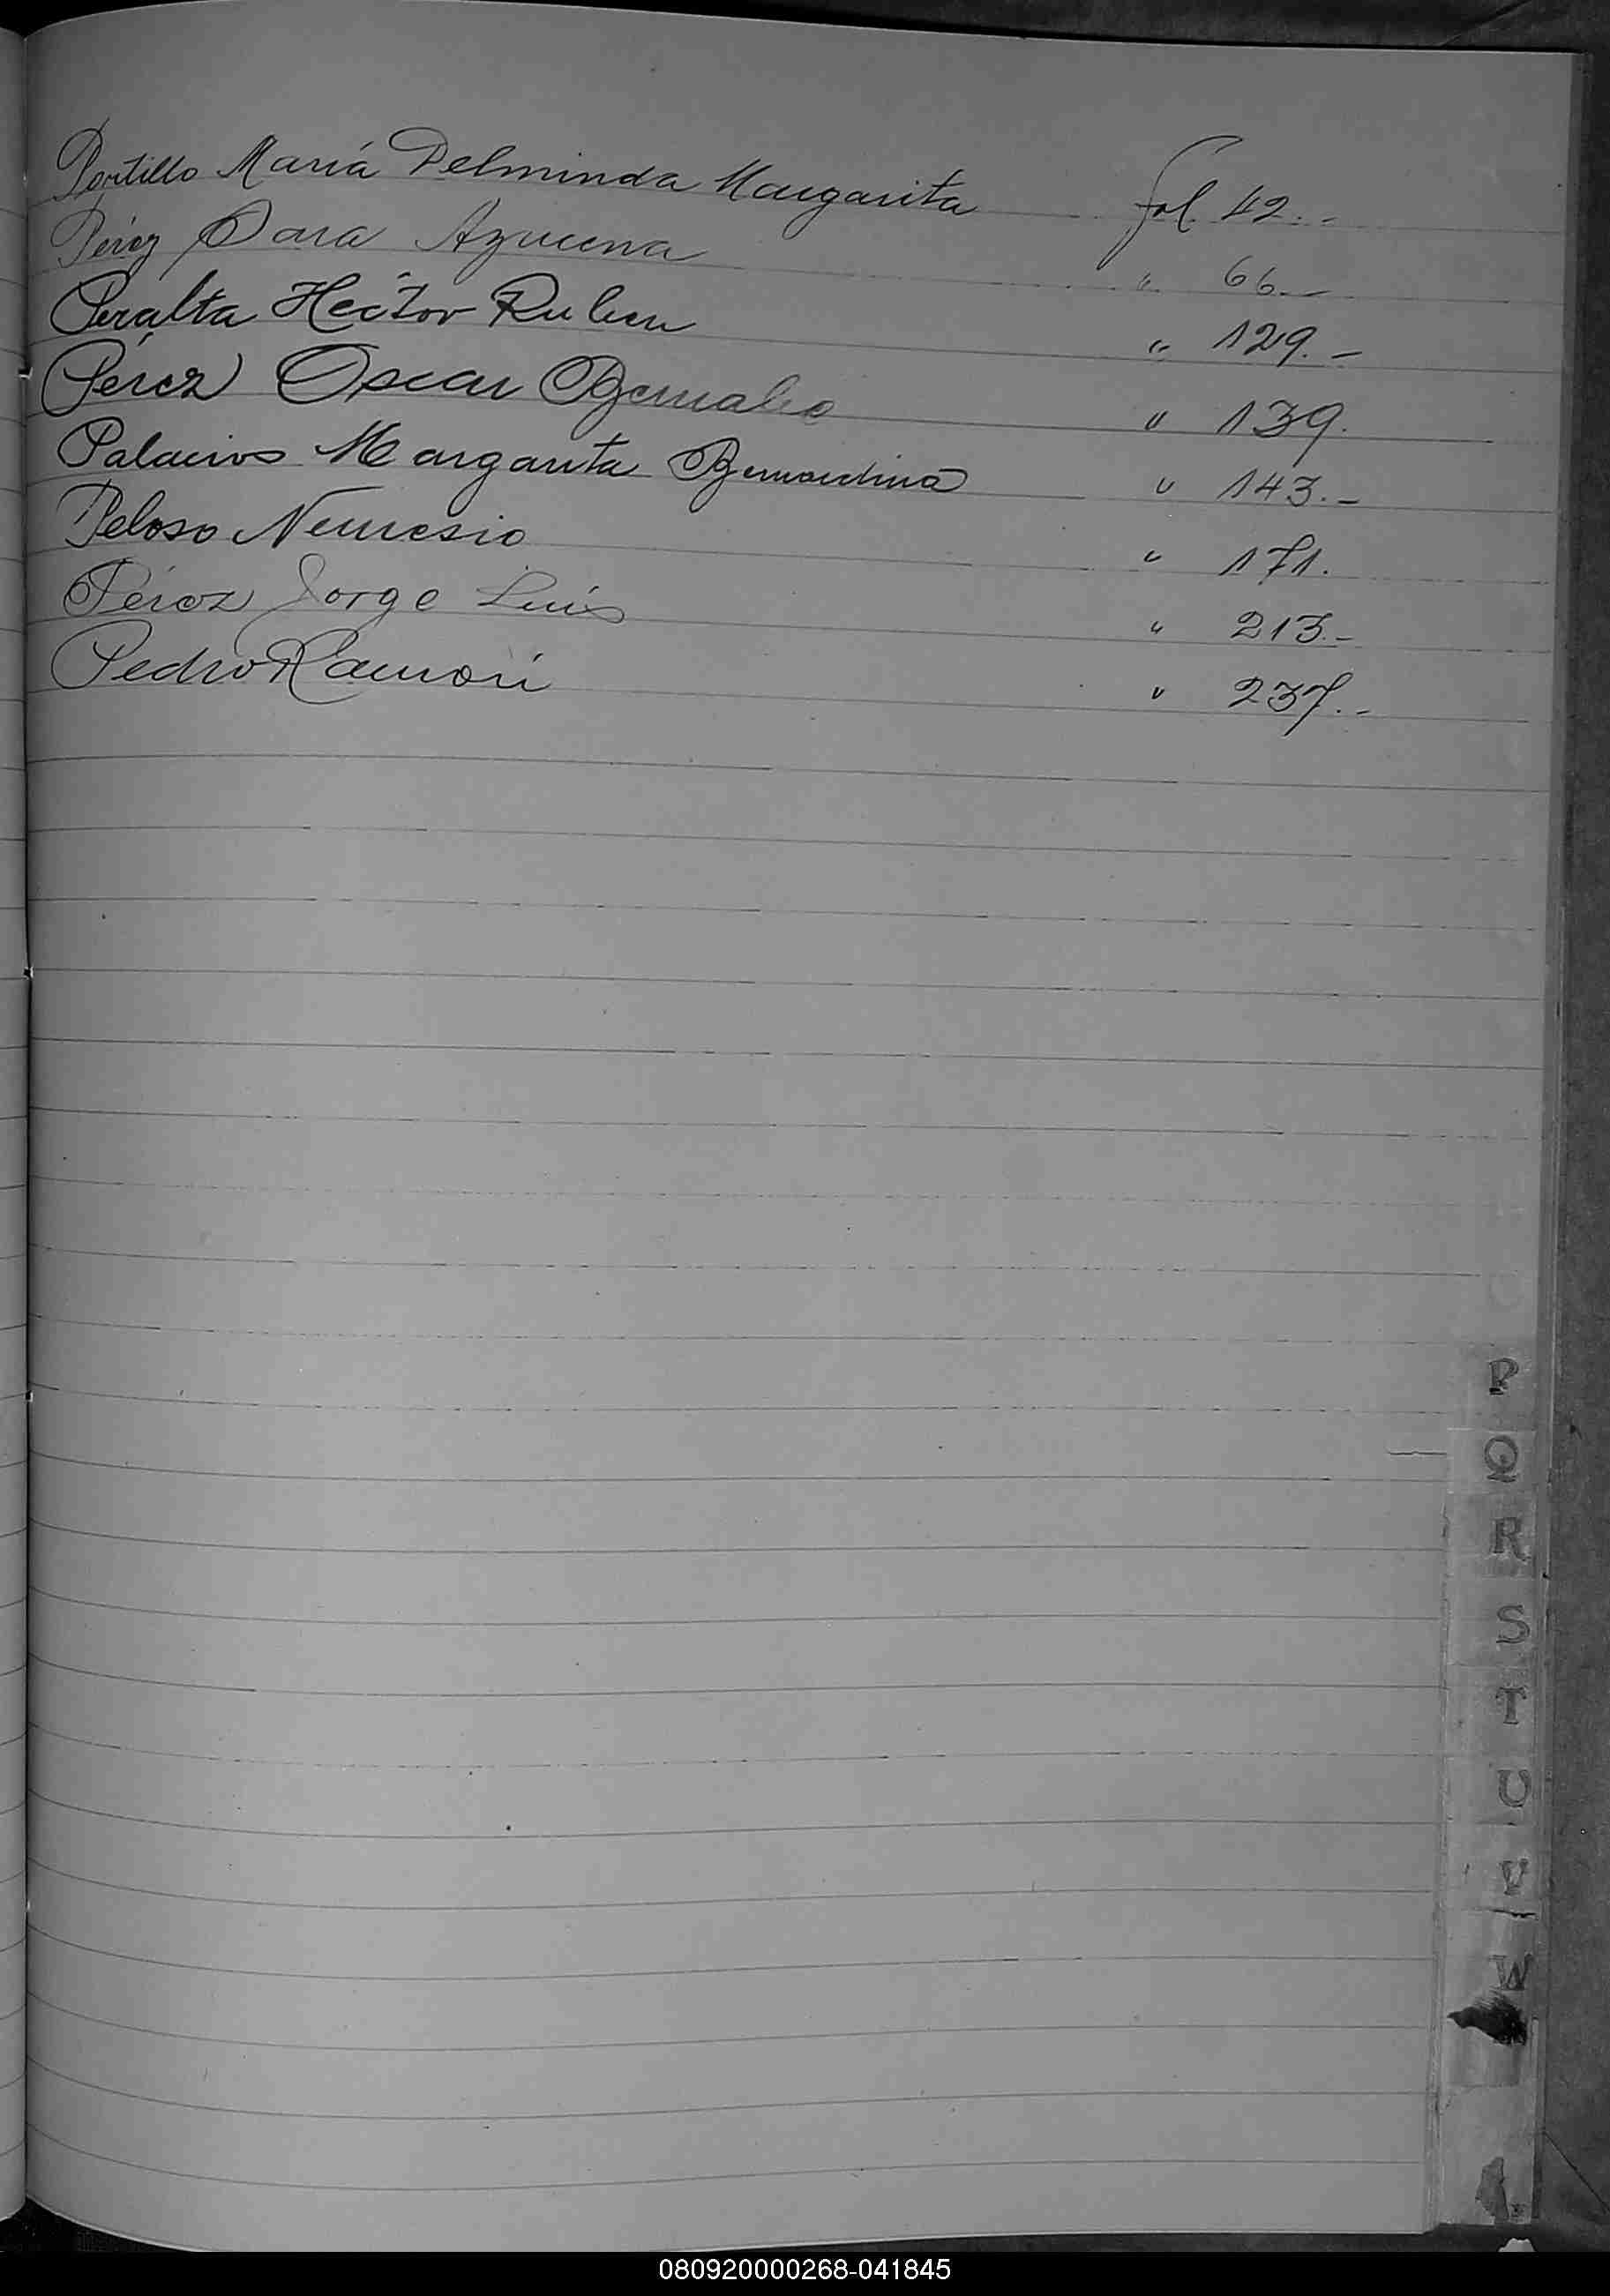 Portillo María Delminda Margarita fol. 42.-
Pérez Sara Azucena " 66.-
Peralta Hector Ruben " 129.-
Pérez Oscar Bernabe " 139.
Palacios Margarita Bernardina " 143.-
Peloso Nemesio " 171.
Pérez Jorge Luis " 213.-
Pedro Ramón " 237.-
P
Q
R
S
T
U
V
W
080920000268-041845